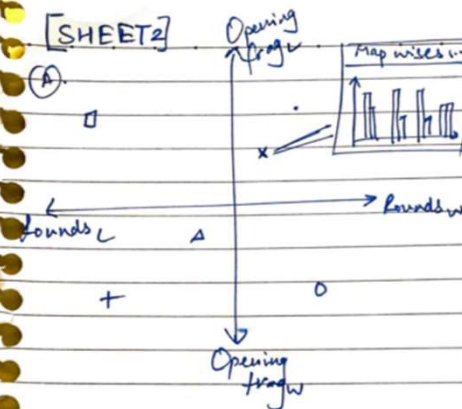 [SHEET2]
Opening
frag w
Map wise
A
Rounds w
Rounds L
Opening
frag w